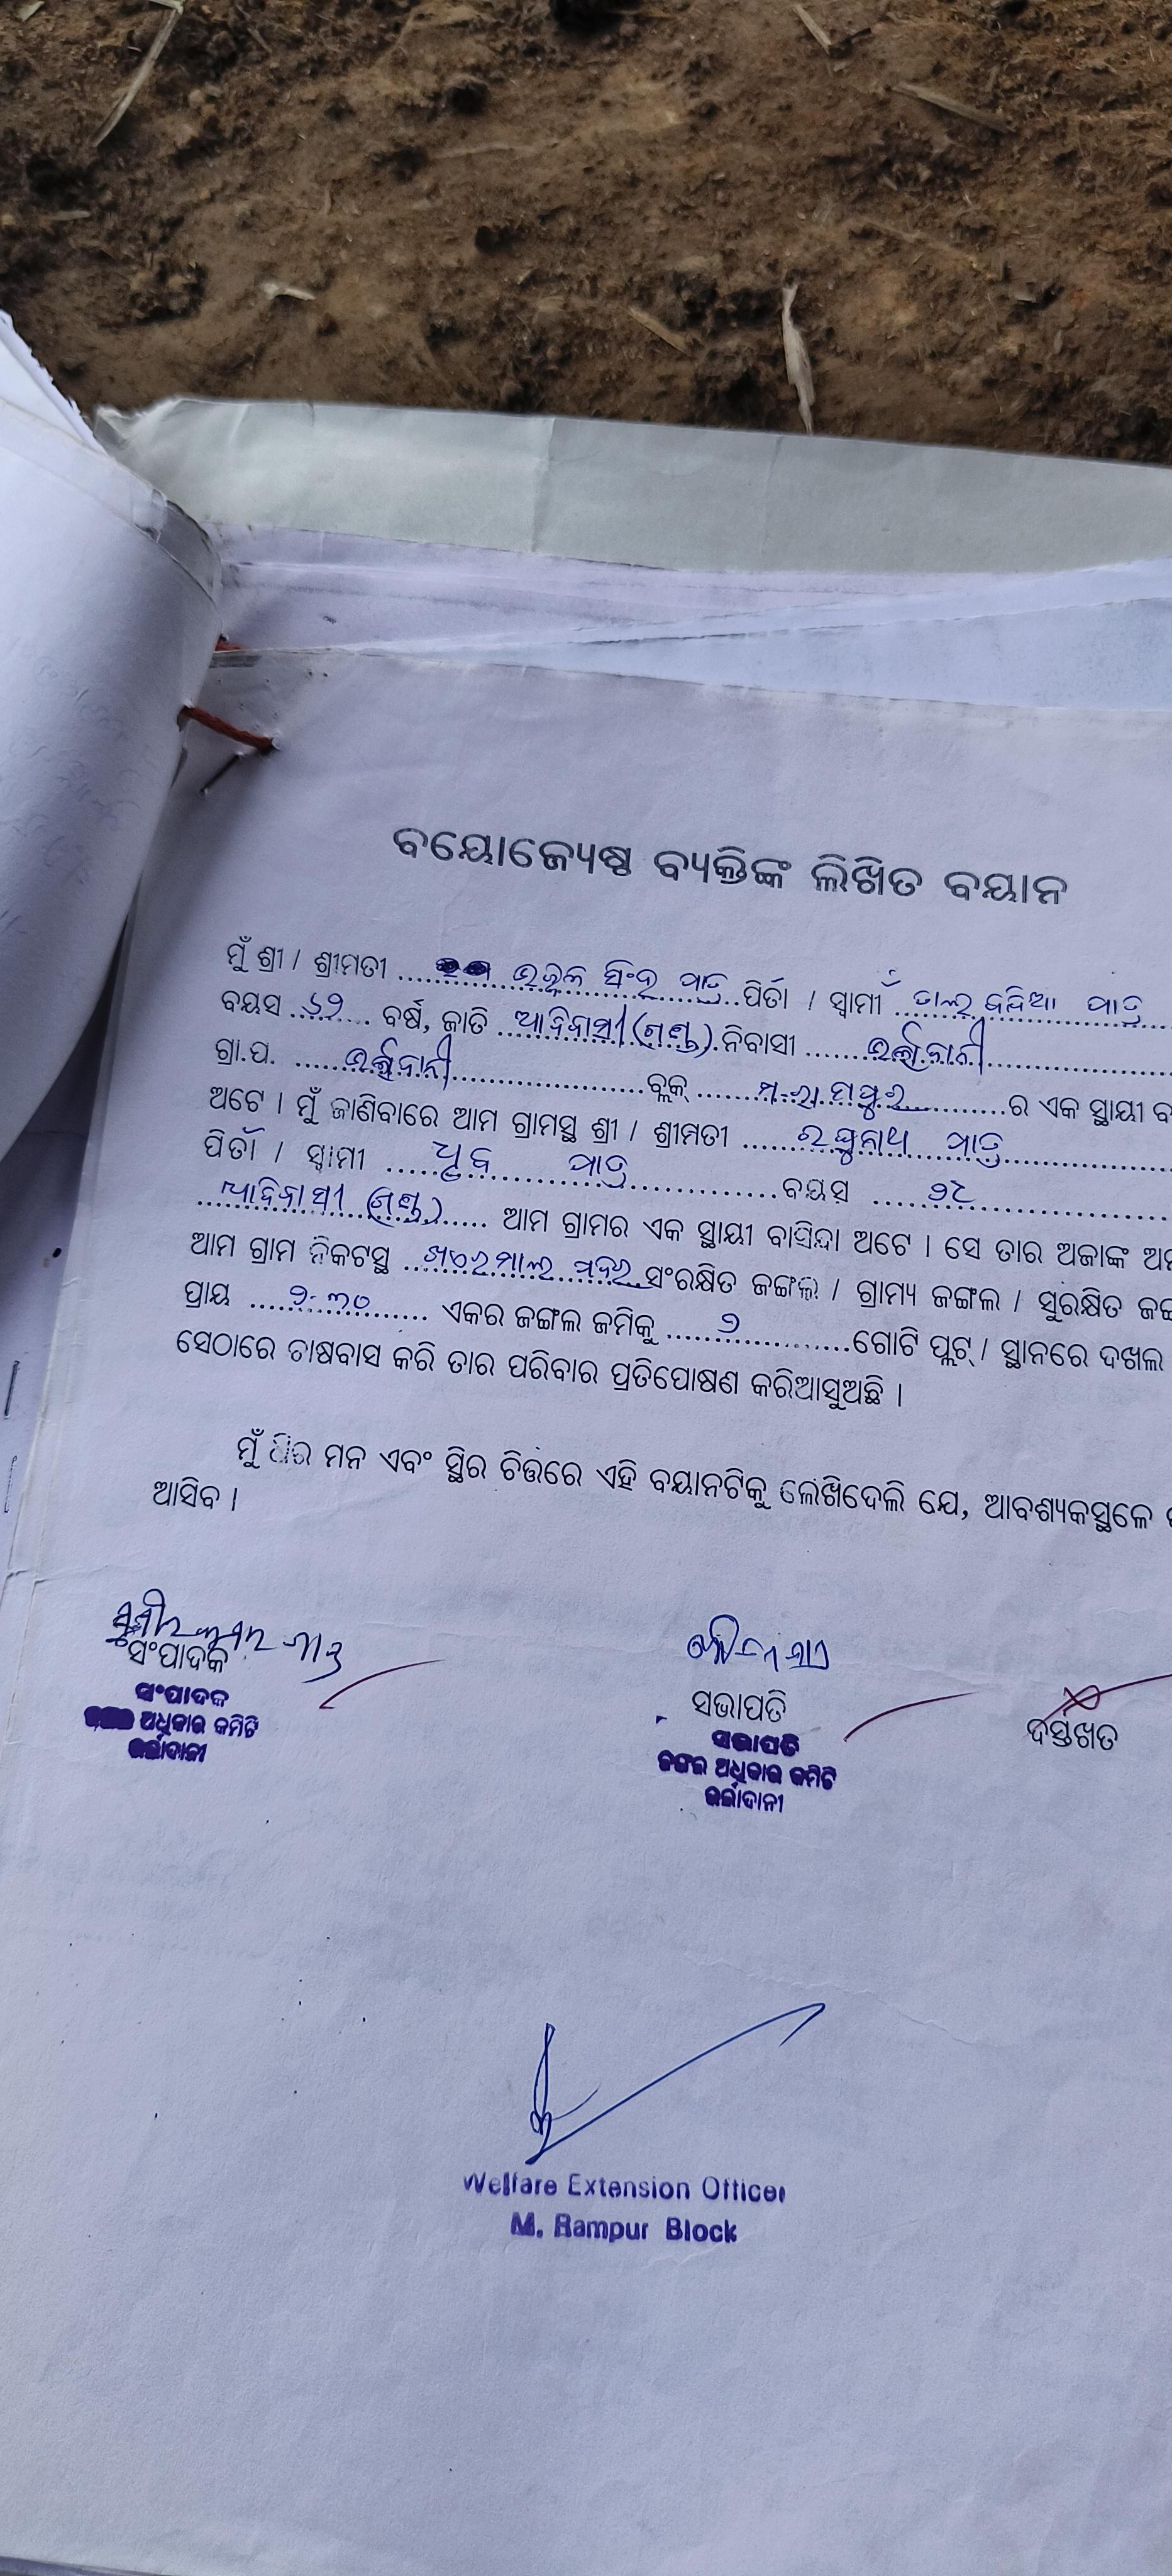 ବୟୋଜ୍ୟେଷ୍ଠ ବ୍ୟକ୍ତିଙ୍କ ଲିଖିତ ବୟାନ
ମୁଁ ଶ୍ରୀ / ଶ୍ରୀମତୀ ........ ସିଂହ ମାଝୀ ..ପିତା / ସ୍ଵାମୀ
ବୟସ ..୬୨.... ବର୍ଷ, ଜାତି ..ଆଦିବାସୀ (ଗଣ୍ଡ).ନିବାସୀ ........
ଗ୍ରା.ପ. ........ବ୍ଲକ୍ ....ମ.ରାମପୁର..........ର ଏକ ସ୍ଥାୟୀ
ଅଟେ । ମୁଁ ଜାଣିବାରେ ଆମ ଗ୍ରାମସ୍ଥ ଶ୍ରୀ / ଶ୍ରୀମତୀ ......ରଘୁନାଥ ମାଝୀ
ପିତା / ସ୍ଵାମୀ ......ଧୃବ ମାଝୀ..............ବୟସ ....୨୯
ଆଦିବାସୀ (ଗଣ୍ଡ)...... ଆମ ଗ୍ରାମର ଏକ ସ୍ଥାୟୀ ବାସିନ୍ଦା ଅଟେ । ସେ ତାର ଅଜାଙ୍କ
ଆମ ଗ୍ରାମ ନିକଟସ୍ଥ ........ସଂରକ୍ଷିତ ଜଙ୍ଗଲ / ଗ୍ରାମ୍ୟ ଜଙ୍ଗଲ / ସୁରକ୍ଷିତ
ପ୍ରାୟ ....୨.୩୦...... ଏକର ଜଙ୍ଗଲ ଜମିକୁ .....୨..........ଗୋଟି ପ୍ଲଟ୍ / ସ୍ଥାନରେ ଦଖଲ
ସେଠାରେ ଚାଷବାସ କରି ତାର ପରିବାର ପ୍ରତିପୋଷଣ କରିଆସୁଅଛି ।
ମୁଁ ମନ ଏବଂ ସ୍ଥିର ଚିତ୍ତରେ ଏହି ବୟାନଟିକୁ ଲେଖିଦେଲି ଯେ, ଆବଶ୍ୟକସ୍ଥଳେ
ଆସିବ ।
ସଂପାଦକ
ସଂପାଦକ
ଅଧିକାର କମିଟି
ସଭାପତି
ସଭାପତି
ଜଙ୍ଗଲ ଅଧିକାର କମିଟି
ଦସ୍ତଖତ
Welfare Extension Officer
M. Rampur Block